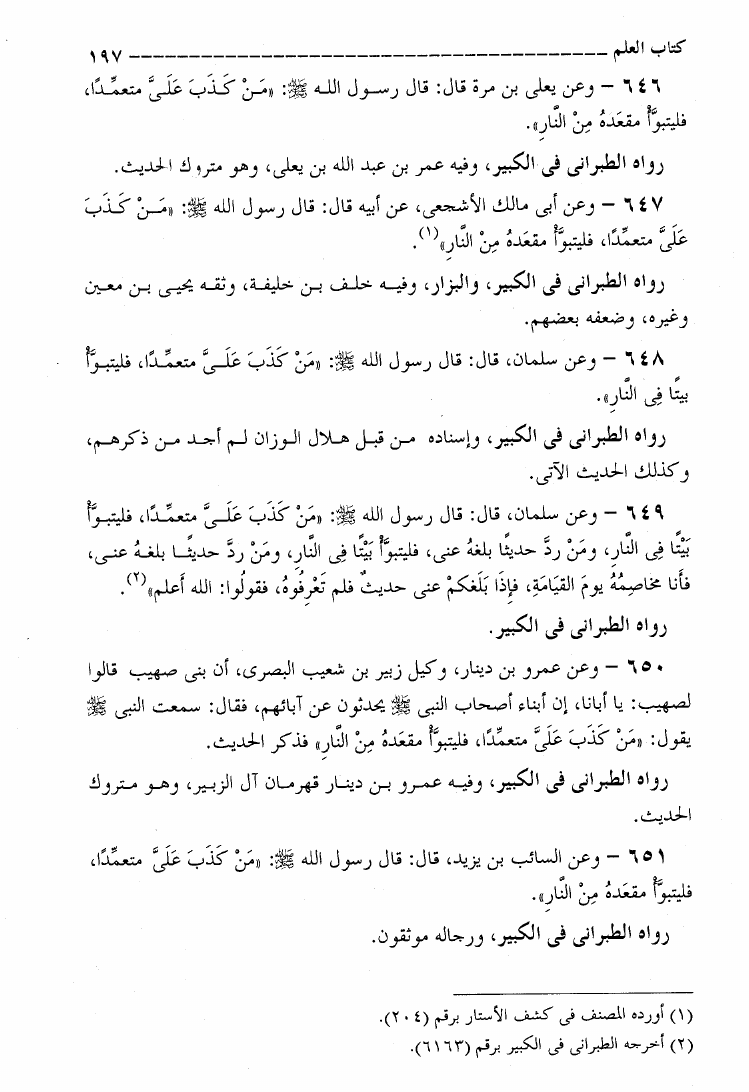 كتاب العلم ــــــــــــــــــــــــــــــــــــــــــــــــــــــــــ ١٩٧
٦٤٦ – وعن يعلى بن مرة قال: قال رسول الله ﷺ: «مَنْ كَذَبَ عَلَىَّ متعمِّدًا،
فليتبوَّأْ مقعَدهُ مِنْ النَّارِ».
رواه الطبرانى فى الكبير، وفيه عمر بن عبد الله بن يعلى، وهو متروك الحديث.
٦٤٧ – وعن أبى مالك الأشجعى، عن أبيه قال: قال رسول الله ﷺ: «مَنْ كَذَبَ
عَلَىَّ متعمِّدًا، فليتبوَّأْ مقعَدهُ مِنْ النَّارِ»(١).
رواه الطبرانى فى الكبير، والبزار، وفيه خلف بن خليفة، وثقه يحيى بن معين
وغيره، وضعفه بعضهم.
٦٤٨ – وعن سلمان، قال: قال رسول الله ﷺ: «مَنْ كَذَبَ عَلَىَّ متعمِّدًا، فليتبوَّأْ
بيتًا فِى النَّارِ».
رواه الطبرانى فى الكبير، وإسناده من قبل هلال الوزان لم أجد من ذكرهم،
وكذلك الحديث الآتى.
٦٤٩ – وعن سلمان، قال: قال رسول الله ﷺ: «مَنْ كَذَبَ عَلَىَّ متعمِّدًا، فليتبوَّأْ
بَيْتًا فِى النَّارِ، ومَنْ ردَّ حديثًا بلغهُ عنى، فليتبوَّأْ بَيْتًا فِى النَّارِ، ومَنْ ردَّ حديثًا بلغهُ عنى،
فأنا مخاصِمُهُ يومَ القيَامَةِ، فإِذَا بَلَغكمْ عنى حديثٌ فلم تَعْرِفُوهُ، فقولُوا: الله أعلم»(٢).
رواه الطبرانى فى الكبير.
٦٥٠ – وعن عمرو بن دينار، وكيل زبير بن شعيب البصرى، أن بنى صهيب قالوا
لصهيب: يا أبانا، إن أبناء أصحاب النبى ﷺ يحدثون عن آبائهم، فقال: سمعت النبى ﷺ
يقول: «مَنْ كَذَبَ عَلَىَّ متعمِّدًا، فليتبوَّأْ مقعَدهُ مِنْ النَّارِ» فذكر الحديث.
رواه الطبرانى فى الكبير، وفيه عمرو بن دينار قهرمان آل الزبير، وهو متروك
الحديث.
٦٥١ – وعن السائب بن يزيد، قال: قال رسول الله ﷺ: «مَنْ كَذَبَ عَلَىَّ متعمِّدًا،
فليتبوَّأْ مقعَدهُ مِنْ النَّارِ».
رواه الطبرانى فى الكبير، ورجاله موثقون.
(١) أورده المصنف فى كشف الأستار برقم (٢٠٤).
(٢) أخرجه الطبرانى فى الكبير برقم (٦١٦٣).